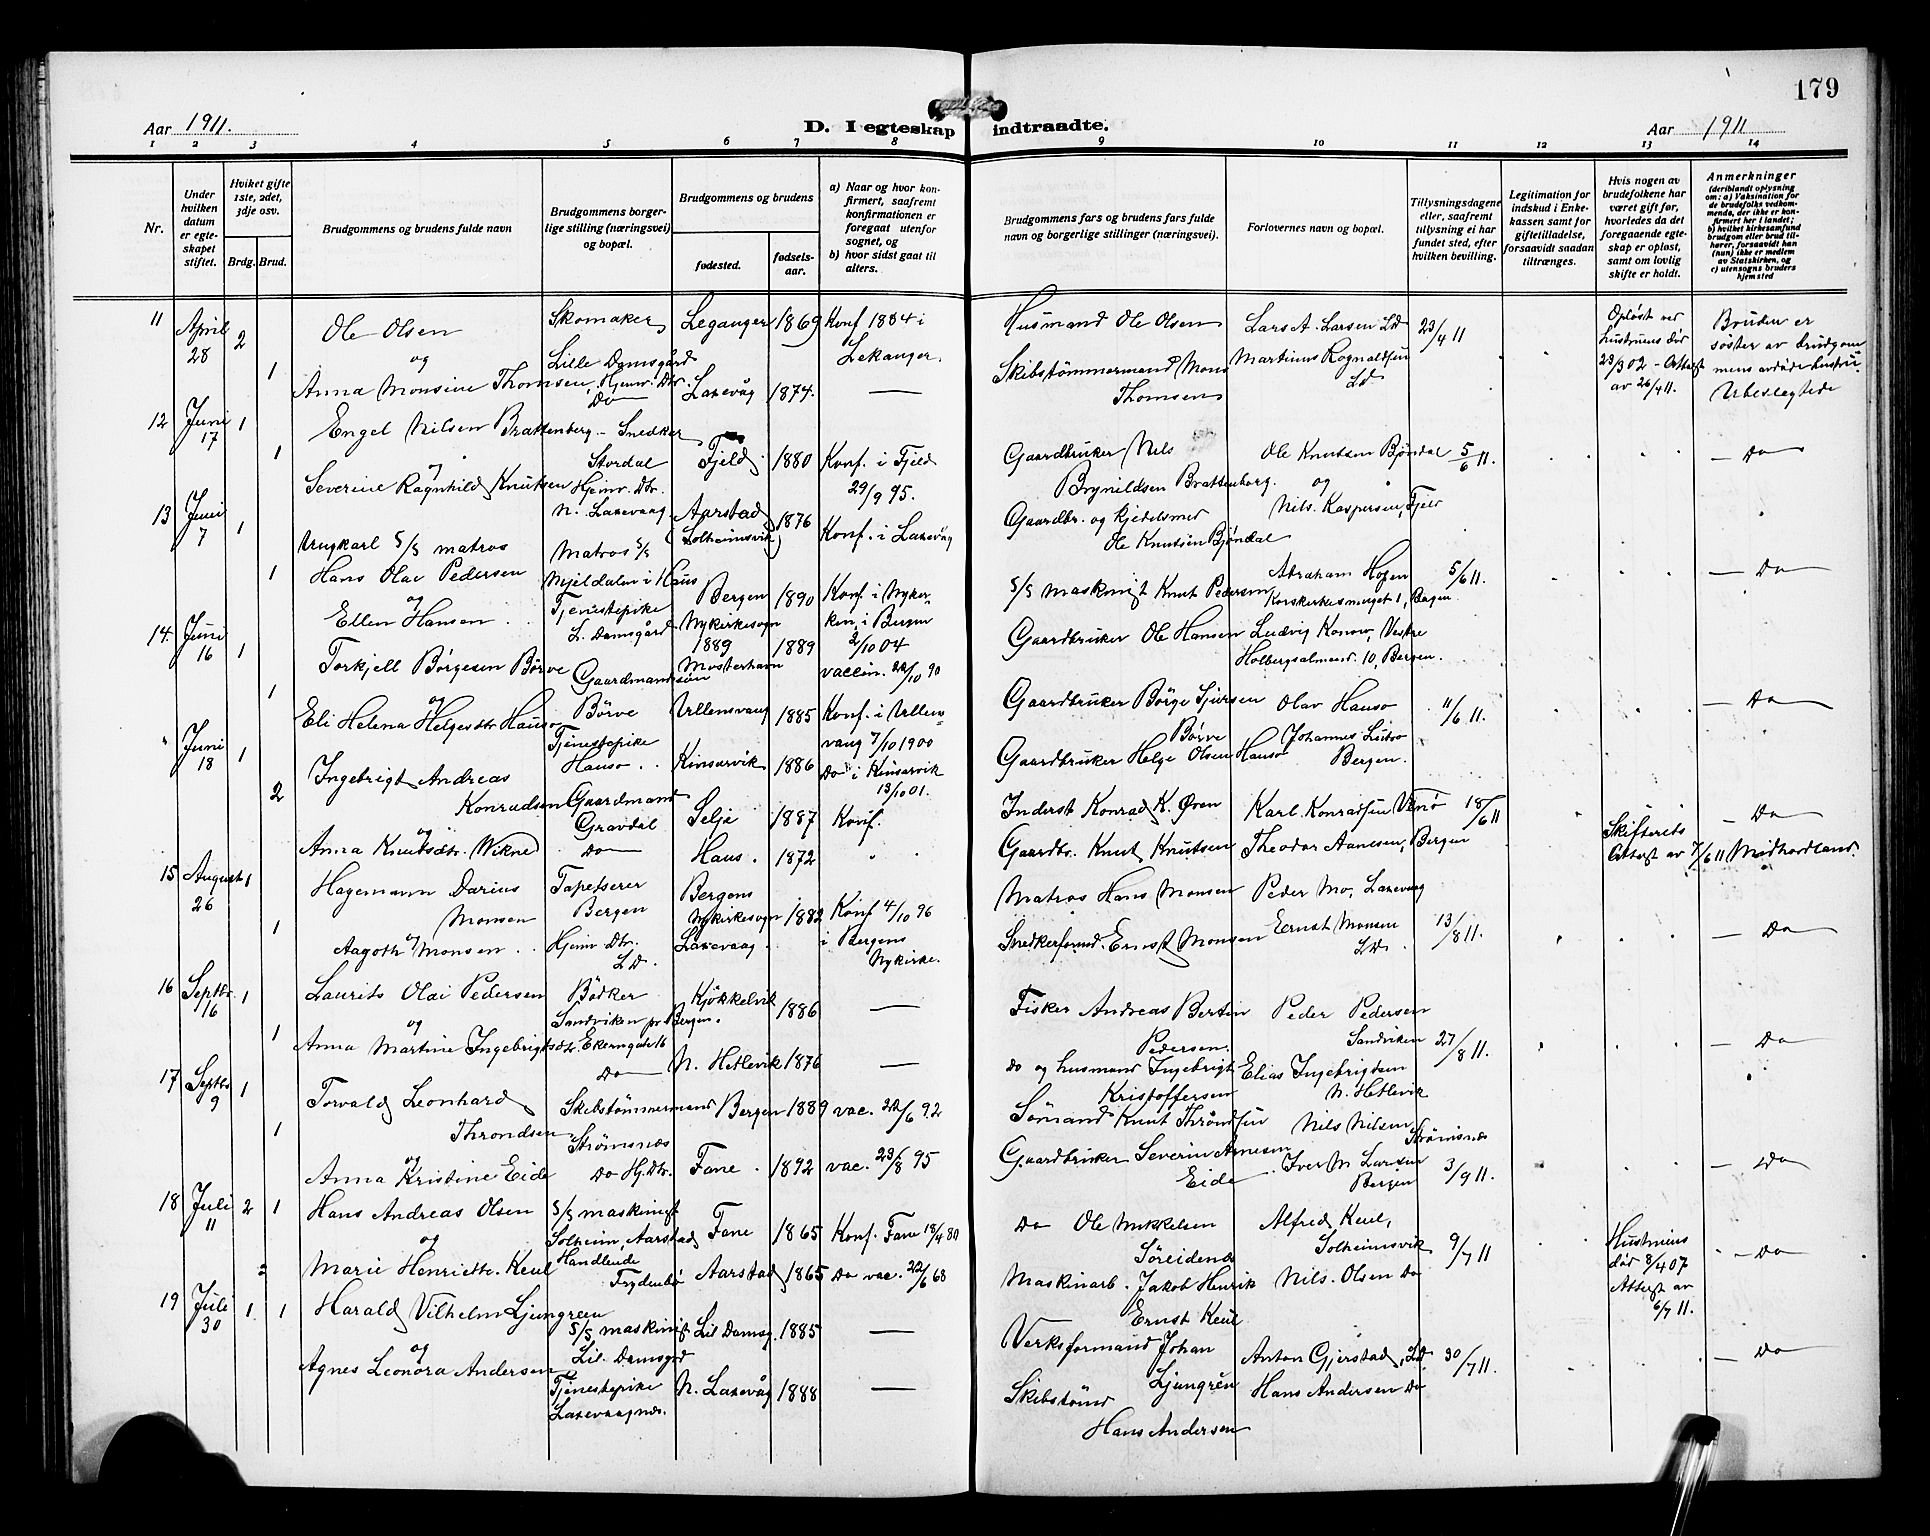 179
Aar 1911.
D. I egteskap indtraadte.
Aar 1911
1 2 3 4 5 6 7 8 9 10 11 12 13 14
Nr.
Under hvilken datum er egteskapet stiftet.
Hvilket gifte 1ste, 2det, 3dje osv.
Brdg. Brud.
Brudgommens og brudens fulde navn
Brudgommens borgerlige stilling (næringsvei) og bopæl.
Brudgommens og brudens
fødested.
fødselsaar.
a) Naar og hvor konfirmert, saafremt konfirmationen er foregaat utenfor sognet, og
b) hvor sidst gaat til alters.
Brudgommens fars og brudens fars fulde navn og borgerlige stillinger (næringsvei).
Forlovernes navn og bopæl.
Tillysningsdagene eller, saafremt tillysning ei har fundet sted, efter hvilken bevilling.
Legitimation for indskud i Enkekassen samt for giftetilladelse, forsaavidt saadan tiltrænges.
Hvis nogen av brudefolkene har været gift før, hvorledes da det foregaaende egteskap er opløst, samt om lovlig skifte er holdt.
Anmerkninger
(deriblandt oplysning om: a) Vaksination for de brudefolks vedkommende, der ikke er konfirmert her i landet; b) hvilket kirkesamfund brudgom eller brud tilhører, forsaavidt han (hun) ikke er medlem av Statskirken, og c) utensogns bruders hjemsted
11 April 28 2 1
Ole Olsen
og
Anna Monsine Thomsen
Skomaker
Lille Damsgård
Hjemv. Dtr.
Do
Leganger 1869 Konf 1884 i Lekanger.
Laxevåg 1874. —
Husmand Ole Olsen
Skibstømmermand Mons Thomsen
Lars A. Larsen LD
Martinus Rognaldsen LD
23/4 11
Opløst ved hustruens død 23/3 02 - Attest av 26/4 11.
Bruden er søster av brudgommens avdøde hustru.
Ubeslegtede
12 Juni 17 1 1
Engel Nilsen Brattenberg - Snedker
og
Severine Ragnhild Knutsen
Stordal
Hjemv. Dtr.
N. Laxevaag
Fjeld. 1880 Konf. i Fjeld 29/9 95.
Aarstad (Solheimsvik) 1876 Konf. i Laxevåg
Gaardbruker Nils Brynildsen Brattenborg.
Gaardbr. og kjedelsmed Ole Knutsen Bjøndal
Ole Knutsen Bjøndal og
Nils Kaspersen, Fjeld
5/6 11. — Do —
13 Juni 7 1 1
Ungkarl S/S matros
Hans Olav Pedersen
og
Ellen Hansen
Matros S/S
Mjeldalen i Haus
Tjenestepike
L. Damsgård
Bergen 1890 Konf. i Nykerken i Bergen 2/10 04
Nykirkesogn 1889
Mosterhavn 1889 vaccin. 22/10 90
S/S maskinist Knut Pedersen
Gaardbruker Ole Hansen
Abraham Hopen
Korskirkesmuget 1, Bergen
Ludvig Konow, Vestre Holbergsalmend. 10, Bergen.
5/6 11. — Do —
14. Juni 16 1 1
Torkjell Börgesen Börve
og
Eli Helena Helgesdtr Hauso
Gaardmandssön
Börve
Tjenestepike
Hauso
Ullensvang 1885 Konf. i Ullensvang 7/10 1900
Kinsarvik 1886 Do i Kinsarvik 13/10 01.
Gaardbruker Börge Sjursen Börve
Gaardbruker Helge Olsen Hauso
Olav Hauso
Johannes Lutro
Bergen.
11/6 11. — Do —
" Juni 18 1 2
Ingebrigt Andreas Konradsen
og
Anna Knutsdtr. Wikne
Gaardmand
Gravdal
Do
Selje 1887 Konf.
Haus. 1872 " "
Inderst Konrad K. Øren
Gaardbr. Knut Knutsen
Karl Konradsen
Theodor Aanesen, Bergen
18/6 11
Skifterets Attest av 7/6 11 Midhordland.
— Do
15 August 26 1 1
Hagemann Darius Monsen
og
Aagoth Monsen
Tapetserer
Bergen
Hjemv Dtr.
LD.
Bergens Nykirkesogn 1882 Konf 4/10 96 i Bergens Nykirke.
Laxevaag.
Matros Hans Monsen
Snedkerformd. Ernst Monsen
Peder Mo, Laxevaag
Ernst Monsen LD.
13/8 11. — Do —
16 Septbr. 16 1 1
Laurits Olai Pedersen
og
Anna Martine Ingebrigtsdtr.
Bödker
Sandviken pr Bergen.
Ekerengate 16
Do
Kjøkkelvik 1886 —
N. Hetlevik 1876 —
Fisker Andreas Bertin Pedersen.
do og husmand Ingebrigt Kristoffersen
Peder Pedersen
Sandviken
Elias Ingebrigtsen
N. Hetlevik
27/8 11. — Do —
17 Septbr 9 1 1
Torvald Leonhard Throndsen
og
Anna Kristine Eide
Skibstömmermand
Strömsnes
Do Hj. Dtr.
Bergen 1889 vac. 22/6 92
Fane. 1892 vac. 23/8 95
Sömand Knut Thröndsen
Gaardbruker Severin Arnesen Eide
Nils Nilsen
Strömsnes
Iver N. Larsen
Bergen
3/9 11. — Do
18 Juli 11 2 1
Hans Andreas Olsen
og
Marie Henriette Keul
S/S maskinist
Solheim, Aarstad
Handlende
Frydenbø
Fane 1865 Konf. Fane 18/4 80
Aarstad 1865 Do vac. 22/6 68
Do Ole Mikkelsen Söreidene
Maskinarb. Jakob Henrik Ernst Keul
Alfred Keul,
Solheimsvik
Nils Olsen Do
9/7 11
Hustruens død 8/4 07 Attest av 6/7 11.
— Do —
19 Juli 30 1. 1
Harald Vilhelm Ljungreen
og
Agnes Leonora Andersen
S/S maskinist
Lil. Damsgrd
Tjenestepike
Laxevaagnes.
Lil Damsg. 1885 —
N. Laxevåg 1888 —
Verksformand Johan Ljungrén
Skibstømd Hans Andersen
Anton Gjerstad, LD
Hans Andersen Do
30/7 11. — Do —